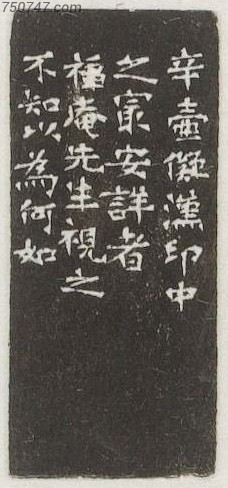 750747.com
辛壺儗漢印中
之冣安詳者
福庵先生視之
不知以為何如